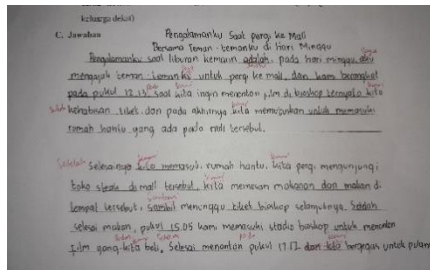 keluarga dekat)
C. Jawaban Pengalamanku Saat pergi ke Mall
Bersama Teman-temanku di Hari Minggu
Pengalamanku saat liburan kemarin adalah, pada hari minggu, aku
mengajak teman temanku untuk pergi ke mall, dan kami berangkat
pada pukul 12.15 saat kita ingin menonton film di bioskop ternyata kita
kehabisan tiket dan pada akhirnya kita memutuskan untuk memasuki
rumah hantu yang ada pada mall tersebut.
Setelah selesainya kita memasuki rumah hantu, kita pergi mengunjungi
toko steak di mall tersebut, kita memesan makanan dan makan di
tempat tersebut, sambil menunggu tiket bioskop selanjutnya. Setelah
selesai makan, pukul 15.05 kami memasuki studio bioskop untuk menonton
film yang kita beli, Selesai menonton pukul 17.12 dan kita bergegas untuk pulang